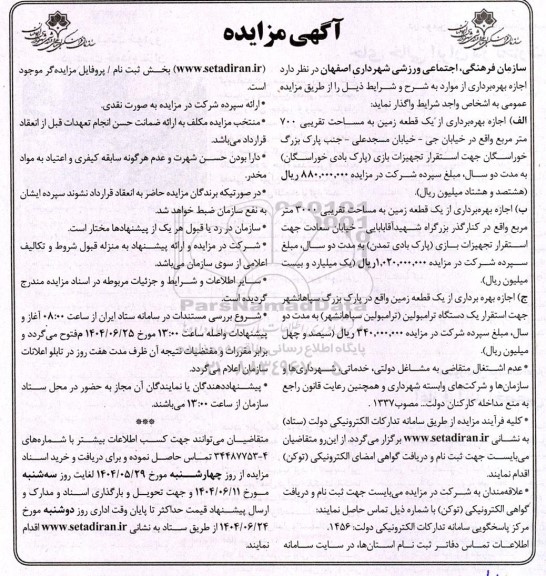 آگهی مزایده
سازمان فرهنگی، اجتماعی ورزشی شهرداری اصفهان در نظر دارد
اجازه بهره‌برداری از موارد به شرح و شرایط ذیل را از طریق مزایده
عمومی به اشخاص واجد شرایط واگذار نماید:
الف) اجازه بهره‌برداری از یک قطعه زمین به مساحت تقریبی ۷۰۰
متر مربع واقع در خیابان جی - خیابان مسجدعلی - جنب پارک بزرگ
خوراسگان جهت استقرار تجهیزات بازی (پارک بادی خوراسگان)
به مدت دو سال، مبلغ سپرده شرکت در مزایده ۸۸۰,۰۰۰,۰۰۰ ریال
(هشتصد و هشتاد میلیون ریال).
ب) اجازه بهره‌برداری از یک قطعه زمین به مساحت تقریبی ۳۰۰۰ متر
مربع واقع در کنارگذر بزرگراه شهیدآقابابایی - خیابان سعادت جهت
استقرار تجهیزات بازی (پارک بادی تمدن) به مدت دو سال، مبلغ
سپرده شرکت در مزایده ۱,۰۲۰,۰۰۰,۰۰۰ ریال (یک میلیارد و بیست
میلیون ریال).
ج) اجازه بهره برداری از یک قطعه زمین واقع در پارک بزرگ سپاهانشهر
جهت استقرار یک دستگاه ترامپولین (ترامپولین سپاهانشهر) به مدت دو
سال، مبلغ سپرده شرکت در مزایده ۳۴۰,۰۰۰,۰۰۰ ریال (سیصد و چهل
میلیون ریال).
* عدم اشتغال متقاضی به مشاغل دولتی، خدماتی، شهرداری‌ها و
سازمان‌ها و شرکت‌های وابسته شهرداری و همچنین رعایت قانون راجع
به منع مداخله کارکنان دولت.. مصوب ۱۳۳۷
* کلیه فرآیند مزایده از طریق سامانه تدارکات الکترونیکی دولت (ستاد)
به نشانی www.setadiran.ir برگزار می‌گردد. از این‌رو متقاضیان
می‌بایست جهت ثبت نام و دریافت گواهی امضای الکترونیکی (توکن)
اقدام نمایند.
* علاقه‌مندان به شرکت در مزایده می‌بایست جهت ثبت نام و دریافت
گواهی الکترونیکی (توکن) با شماره ذیل تماس حاصل نمایند:
مرکز پاسخگویی سامانه تدارکات الکترونیکی دولت: ۱۴۵۶
اطلاعات تماس دفاتر ثبت نام استان‌ها، در سایت سامانه
(www.setadiran.ir) بخش ثبت نام / پروفایل مزایده‌گر موجود
است.
* ارائه سپرده شرکت در مزایده به صورت نقدی.
* منتخب مزایده مکلف به ارائه ضمانت حسن انجام تعهدات قبل از انعقاد
قرارداد می‌باشد.
* دارا بودن حسن شهرت و عدم هرگونه سابقه کیفری و اعتیاد به مواد
مخدر.
* در صورتیکه برندگان مزایده حاضر به انعقاد قرارداد نشوند سپرده ایشان
به نفع سازمان ضبط خواهد شد.
* سازمان در رد یا قبول هر یک از پیشنهادها مختار است.
* شرکت در مزایده و ارائه پیشنهاد به منزله قبول شروط و تکالیف
اعلامی از سوی سازمان می‌باشد.
* سایر اطلاعات و شرایط و جزئیات مربوطه در اسناد مزایده مندرج
گردیده است.
* شروع بررسی مستندات در سامانه ستاد ایران از ساعت ۰۸:۰۰ آغاز و
پیشنهادات واصله ساعت ۱۳:۰۰ مورخ ۱۴۰۴/۰۶/۲۵ مفتوح می‌گردد و
برابر مقررات و مقتضیات نتیجه آن ظرف مدت هفت روز در تابلو اعلانات
سازمان اعلام می‌گردد.
* پیشنهاددهندگان یا نمایندگان آن مجاز به حضور در محل ستاد
سازمان از ساعت ۱۳:۰۰ می‌باشند.
***
متقاضیان می‌توانند جهت کسب اطلاعات بیشتر با شماره‌های
۳۴۴۸۷۷۵۳-۴ تماس حاصل نموده و برای دریافت و خرید اسناد
مزایده از روز چهارشنبه مورخ ۱۴۰۴/۰۵/۲۹ لغایت روز سه‌شنبه
مورخ ۱۴۰۴/۰۶/۱۱ و جهت تحویل و بارگذاری اسناد و مدارک و
ارسال پیشنهاد قیمت حداکثر تا پایان وقت اداری روز دوشنبه مورخ
۱۴۰۴/۰۶/۲۴ از طریق ستاد به نشانی www.setadiran.ir اقدام
نمایند.
ParsNamadData